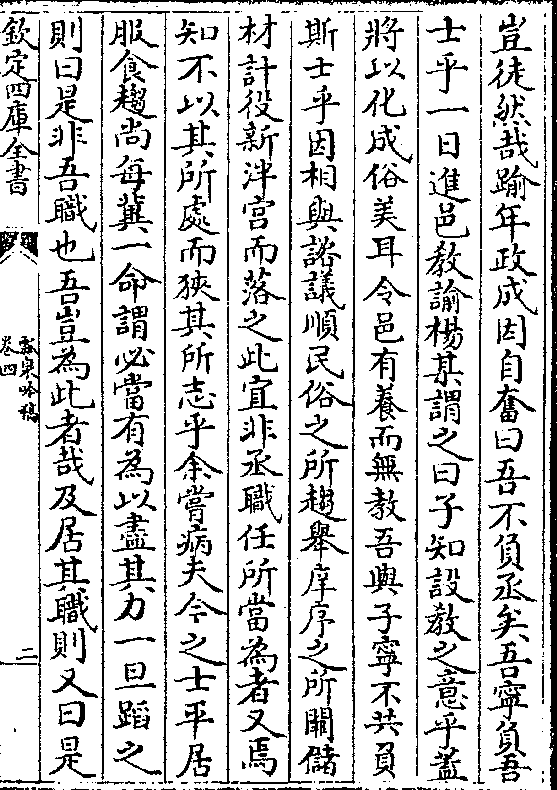 豈徒然哉踰年政成因自奮曰吾不負丞矣吾寧負吾
士乎一日進邑教諭楊某謂之曰子知設教之意乎葢
將以化成俗美耳今邑有養而無教吾與子寧不共負
斯士乎因相與諮議順民俗之所趨舉庠序之所闕儲
材計役新泮宫而落之此宜非丞職任所當為者又焉
知不以其所處而狹其所志乎余嘗病夫今之士平居
服食趨尚每冀一命謂必當有為以盡其力一旦蹈之
則曰是非吾職也吾豈為此者哉及居其職則又曰是
欽定四庫全書
瓢泉吟稿
卷四
二